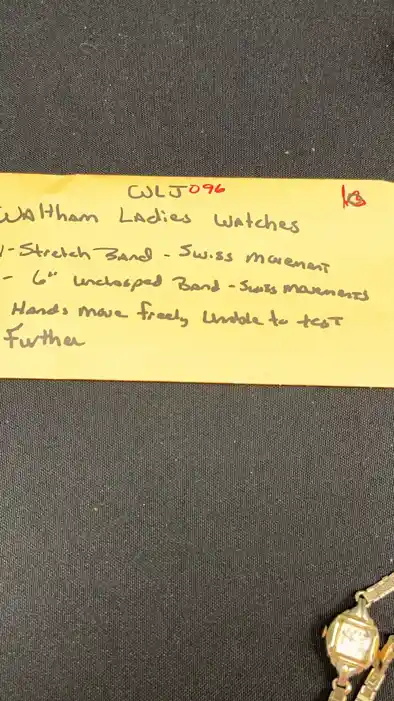 CWLJ096
Waltham Ladies Watches
1 - Stretch Band - Swiss movement
- 6" unclasped Band - Swiss movements
Hands move freely Unable to test
Further